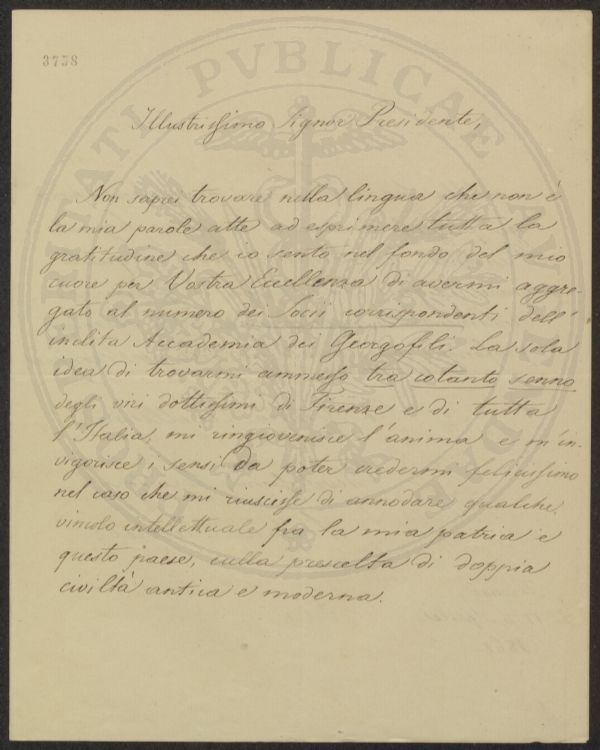 3738
Illustrissimo Signor Presidente,
Non saprei trovare nella lingua che non è
la mia parole atte ad esprimere tutta la
gratitudine che io sento nel fondo del mio
cuore per Vostra Eccellenza di avermi aggre-
gato al numero dei Socii corrispondenti dell'
inclita Accademia dei Georgofili. La sola
idea di trovarmi ammesso tra cotanto senno
degli viri dottissimi di Firenze e di tutta
l'Italia, mi ringiovenisce l'anima e m'in-
vigorisce i sensi da poter credermi felicissimo
nel caso che mi riuscisse di annodare qualche
vincolo intellettuale fra la mia patria e
questo paese, culla prescelta di doppia
civiltà antica e moderna.